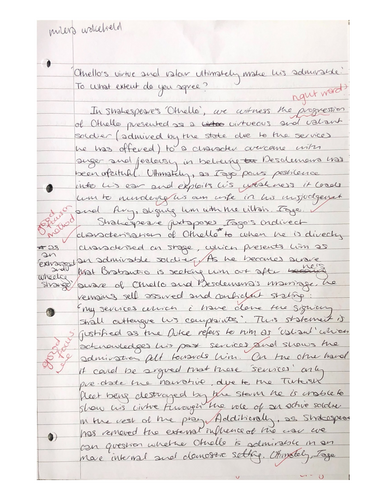 milera wakefield
'Othello's virtue and valour ultimately make him admirable'
To what extent do you agree?
right word?
In Shakespeare's 'Othello', we witness the progression
of Othello presented as a virtuous and valiant
soldier (admired by the state due to the services
he has offered) to a character overcome with
anger and jealousy in believing Desdemona has
been unfaithful. Ultimately, as Iago pours pestilence
into his ear and exploits his weakness it leads
him to murdering his own wife in his misjudgement
and fury, aligning him with the villain Iago.
Shakespeare juxtaposes Iago's indirect
characterisation of Othello * to when he is directly
characterised on stage, which presents him as
* as
an
extravagant
and
wheeling
stranger
an admirable soldier. As he becomes aware
that Brabantio is seeking him out after he's
aware of Othello and Desdemona's marriage, he
remains self assured and confident stating:
"my services which i have done the signiory
shall outtongue his complaints". This statement is
justified as the Duke refers to him as 'valiant' which
good
acknowledges his past services and shows the
admiration felt towards him. On the other hand
it could be argued that these services only
pre-date the narrative, due to the Turkish
fleet being destroyed by the storm he is unable to
show his virtue through the role of an active soldier
in the rest of the play. Additionally, as Shakespeare
has removed the external influence of the war we
can question whether Othello is admirable in an
more internal and domestic setting. Ultimately Iago